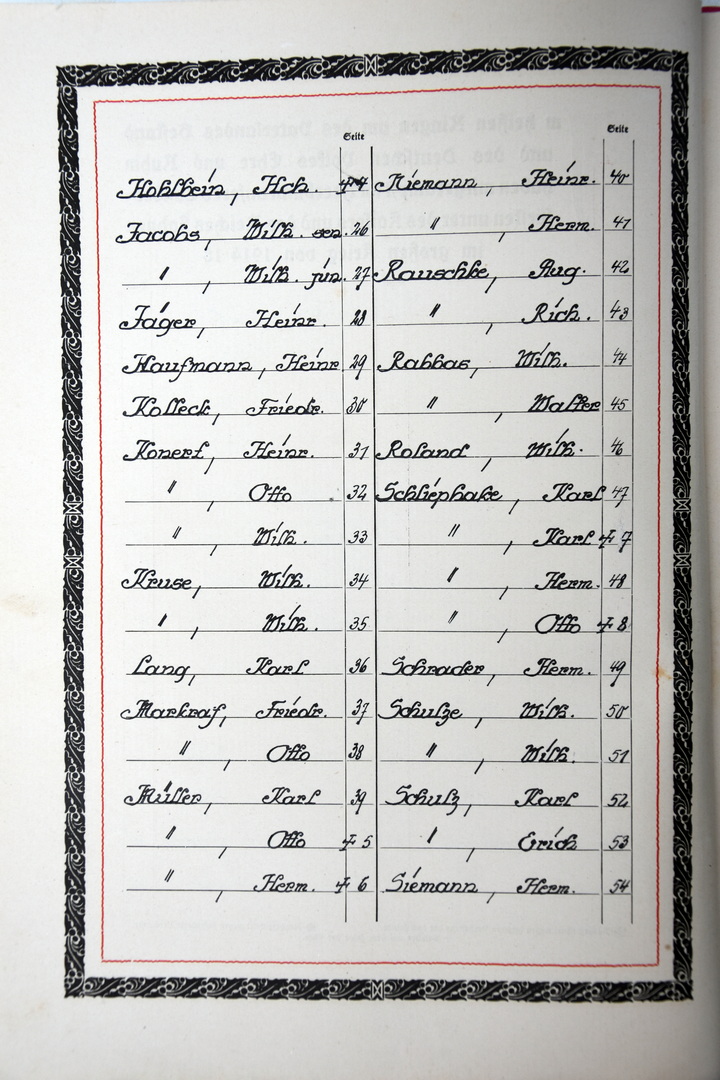 Seite
Hohlbein, Hch. ✝ 4
Jacobs, Wilh. sen. 26
" , Wilh. jun. 27
Jäger, Heinr. 28
Kaufmann, Heinr. 29
Kolleck, Friedr. 30
Konert, Heinr. 31
" , Otto 32
" , Wilh. 33
Kruse, Wilh. 34
" , Wilh. 35
Lang, Karl 36
Markraf, Friedr. 37
" , Otto 38
Müller, Karl 39
" , Otto ✝ 5
" , Herm. ✝ 6
Seite
Niemann, Heinr. 40
" , Herm. 41
Rauschke, Aug. 42
" , Rich. 43
Rabbas, Wilh. 44
" , Walter 45
Roland, Wilh. 46
Schliephake, Karl 47
" , Karl ✝ 7
" , Herm. 48
" , Otto ✝ 8
Schrader, Herm. 49
Schulze, Wilh. 50
" , Wilh. 51
Schulz, Karl 52
" , Erich 53
Siemann, Herm. 54